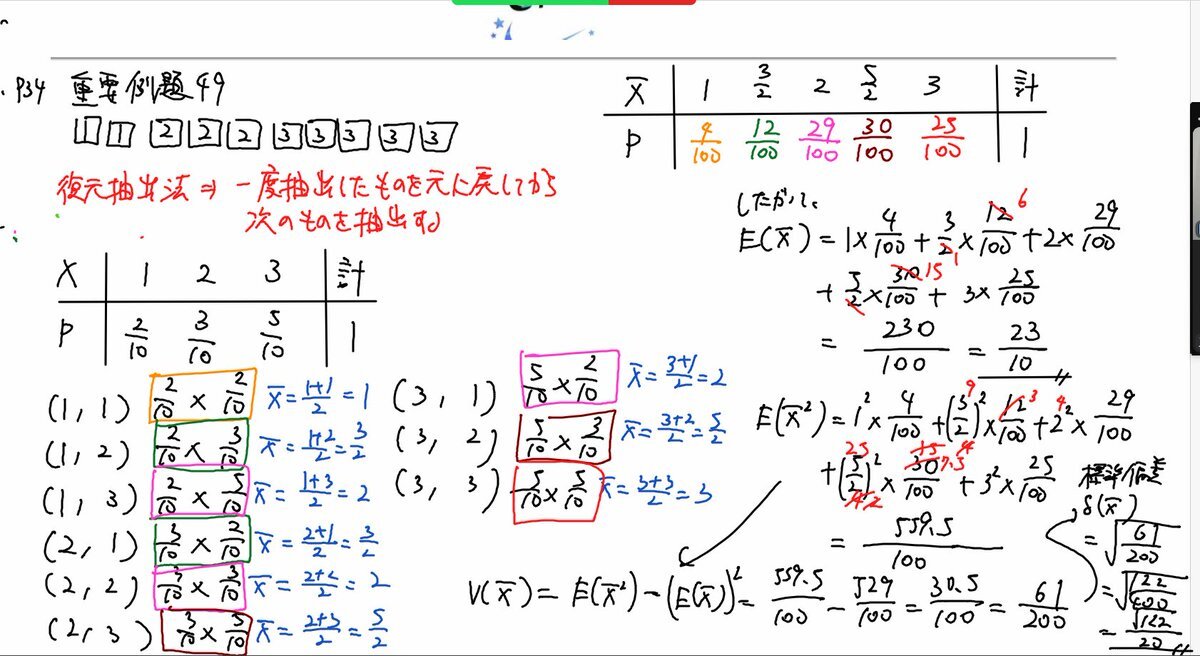 P34 重要例題49
1 1 2 2 2 3 3 3 3 3
復元抽出法⇒一度抽出したものを元に戻してから
次のものを抽出する
X 1 2 3 計
P 2/10 3/10 5/10 1
(1, 1) 2/10 × 2/10 X̄ = (1+1)/2 = 1
(1, 2) 2/10 × 3/10 X̄ = (1+2)/2 = 3/2
(1, 3) 2/10 × 5/10 X̄ = (1+3)/2 = 2
(2, 1) 3/10 × 2/10 X̄ = (2+1)/2 = 3/2
(2, 2) 3/10 × 3/10 X̄ = (2+2)/2 = 2
(2, 3) 3/10 × 5/10 X̄ = (2+3)/2 = 5/2
(3, 1) 5/10 × 2/10 X̄ = (3+1)/2 = 2
(3, 2) 5/10 × 3/10 X̄ = (3+2)/2 = 5/2
(3, 3) 5/10 × 5/10 X̄ = (3+3)/2 = 3
X̄ 1 3/2 2 5/2 3 計
P 4/100 12/100 29/100 30/100 25/100 1
したがって、
E(X̄) = 1 × 4/100 + 3/2 × 12/100 + 2 × 29/100
+ 5/2 × 30/100 + 3 × 25/100
= 230/100 = 23/10
E(X̄²) = 1² × 4/100 + (3/2)² × 12/100 + 2² × 29/100
+ (5/2)² × 30/100 + 3² × 25/100
= 559.5/100
V(X̄) = E(X̄²) − (E(X̄))² = 559.5/100 − 529/100 = 30.5/100 = 61/200
標準偏差
δ(X̄)
= √(61/200)
= √(122/400)
= √122/20